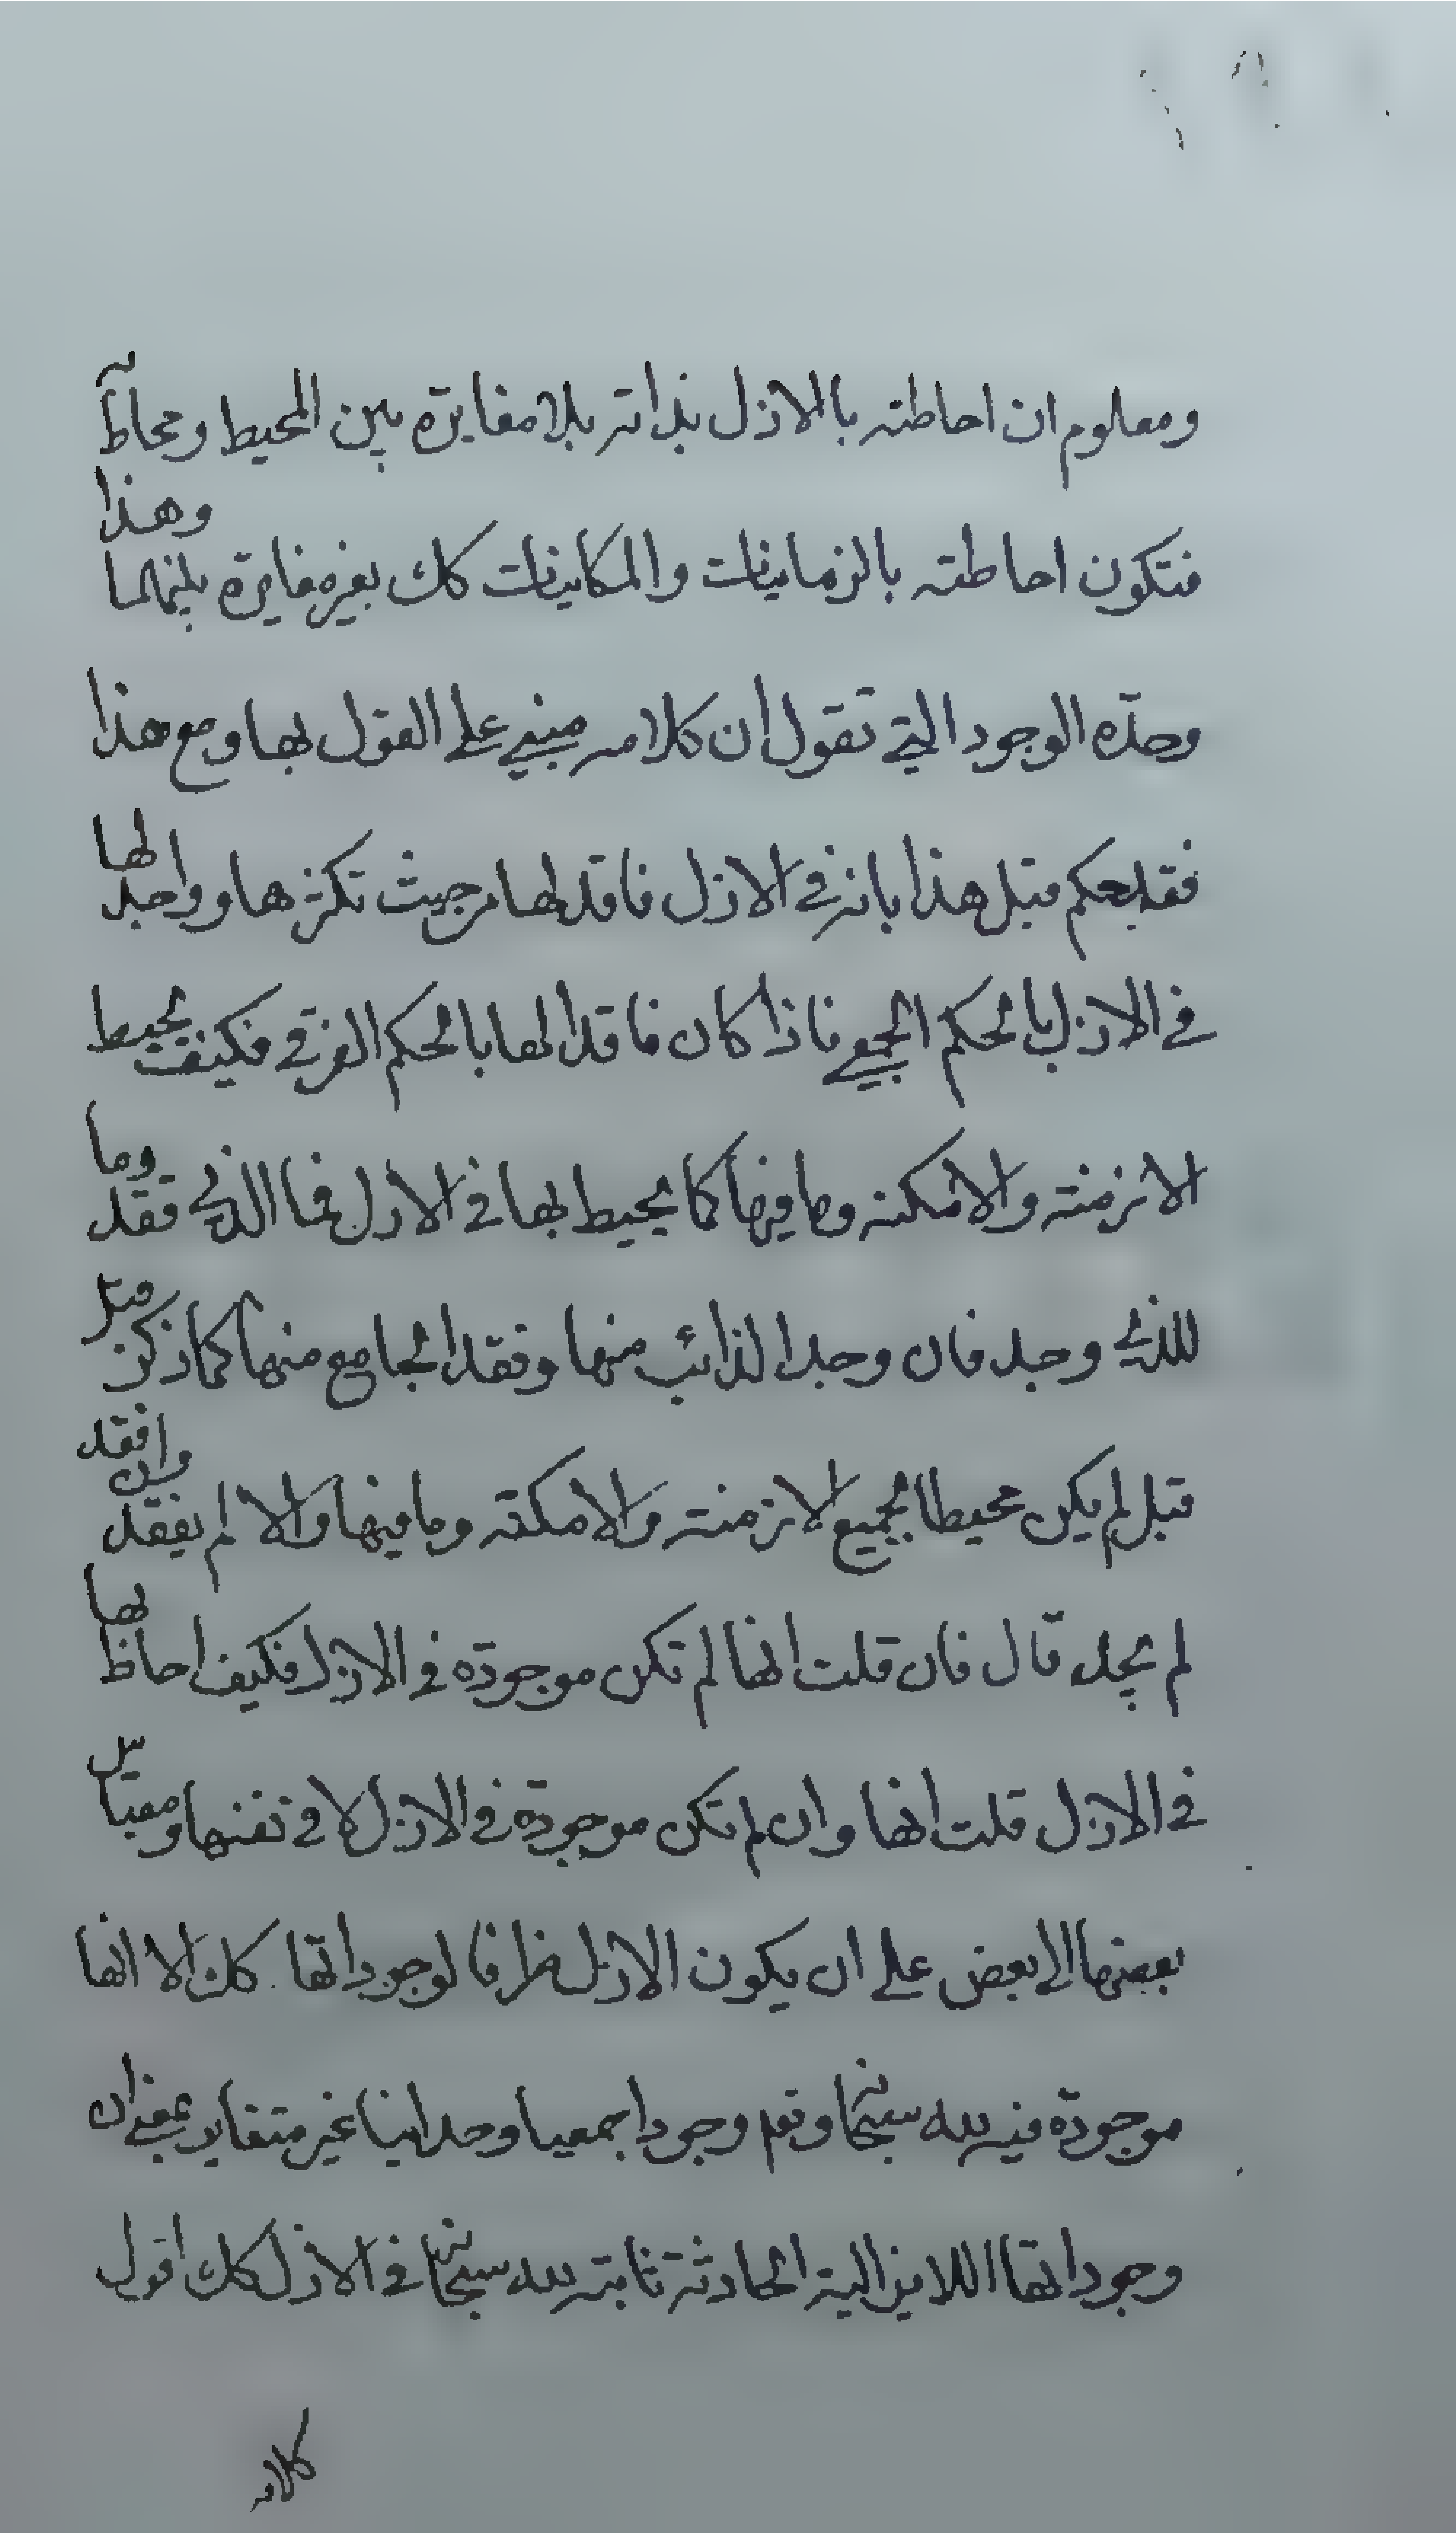 ومعلوم ان احاطته بالازل بذاته بلا مغايرة بين المحيط ومحاط
فتكون احاطته بالزمانيات والمكانيات كك بغير مغايرة بينهما وهذا
وحدة الوجود التي تقول ان كلامه مبني على القول بها ومع هذا
فقد حكم قبل هذا بانه في الازل فاقد لها من حيث تكثرها وواجد لها
في الازل بالحكم الجمعي فاذا كان فاقدا لها بالحكم الفرقي فكيف يحيط
الازمنة والامكنة وما فيها كما يحيط بها في الازل فما الذي فقد وما
الذي وجد فان وجد الذائب منها وفقد الجامع منها كما ذكر قبل
قبل لم يكن محيطا بجميع الازمنة والامكنة وما فيها والا لم يفقد وان فقد
لم يجد قال فان قلت انها لم تكن موجودة في الازل فكيف احاط بها
في الازل قلت انها وان لم تكن موجودة في الازل لا في نفسها وبقياس
بعضها الى بعض على ان يكون الازل ظرفا لوجوداتها كك الا انها
موجودة فيه لله سبحانه وتعم وجودا جمعيا وحدانيا غير متغاير بمعنى ان
وجوداتها اللايزالية الحادثة ثابتة لله سبحانه في الازل كك اقول
كلامه